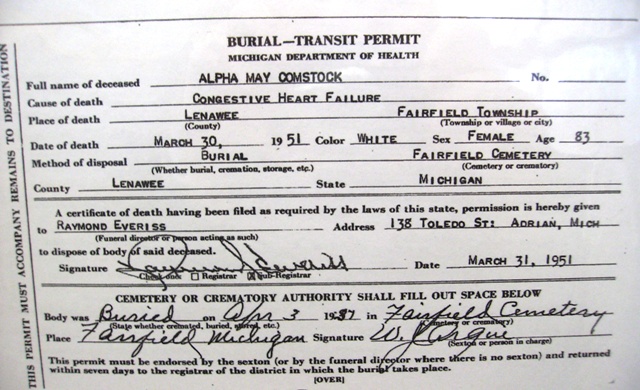 BURIAL—TRANSIT PERMIT
MICHIGAN DEPARTMENT OF HEALTH
Full name of deceased ALPHA MAY COMSTOCK No.
Cause of death CONGESTIVE HEART FAILURE
Place of death LENAWEE FAIRFIELD TOWNSHIP
(County) (Township or village or city)
Date of death MARCH 30, 1951 Color WHITE Sex FEMALE Age 83
Method of disposal BURIAL FAIRFIELD CEMETERY
(Whether burial, cremation, storage, etc.) (Cemetery or crematory)
County LENAWEE State MICHIGAN
A certificate of death having been filed as required by the laws of this state, permission is hereby given
to RAYMOND EVERISS Address 138 TOLEDO ST: ADRIAN, MICH
(Funeral director or person acting as such)
to dispose of body of said deceased.
Signature Raymond Everiss Date MARCH 31, 1951
Check one Registrar Sub-Registrar
CEMETERY OR CREMATORY AUTHORITY SHALL FILL OUT SPACE BELOW
Body was Buried on Apr 3 19 in Fairfield Cemetery
(State whether cremated, buried, stored, etc.) (Cemetery or crematory)
Place Fairfield Michigan Signature W.
(Sexton or person in charge)
This permit must be endorsed by the sexton (or by the funeral director where there is no sexton) and returned
within seven days to the registrar of the district in which the burial takes place.
[OVER]
THIS PERMIT MUST ACCOMPANY REMAINS TO DESTINATION